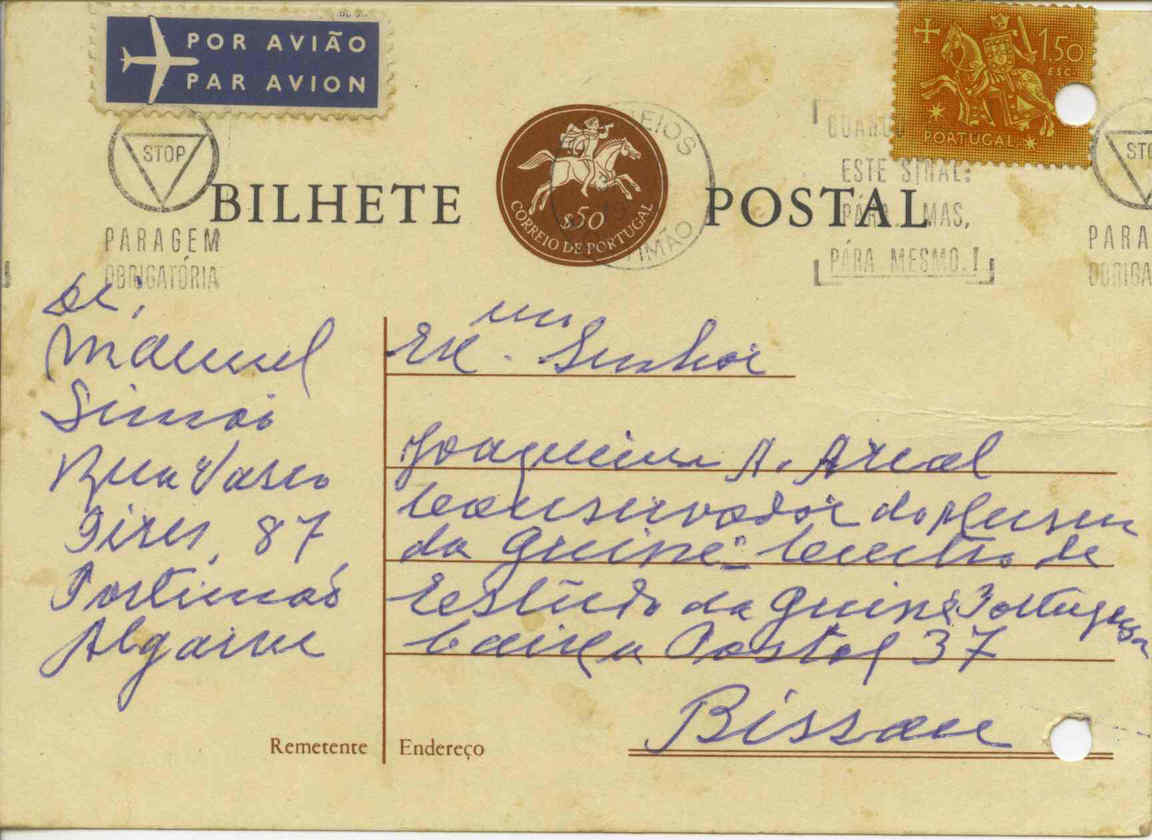 POR AVIÃO
PAR AVION
1$50
ESC.
PORTUGAL
STOP
PARAGEM
OBRIGATÓRIA
BILHETE POSTAL
$50
CORREIO DE PORTUGAL
ESTE SINAL:
PÁRA MAS,
PÁRA MESMO.!
STO
PARA
OBRIGA
De,
Manuel
Simões
Rua Vasco
Pires, 87
Portimão
Algarve
Exmo. Senhor
Joaquim A. Areal
Conservador do Museu
da Guiné - Centro de
Estudo da Guiné Portuguesa
Caixa Postal 37
Bissau
Remetente
Endereço